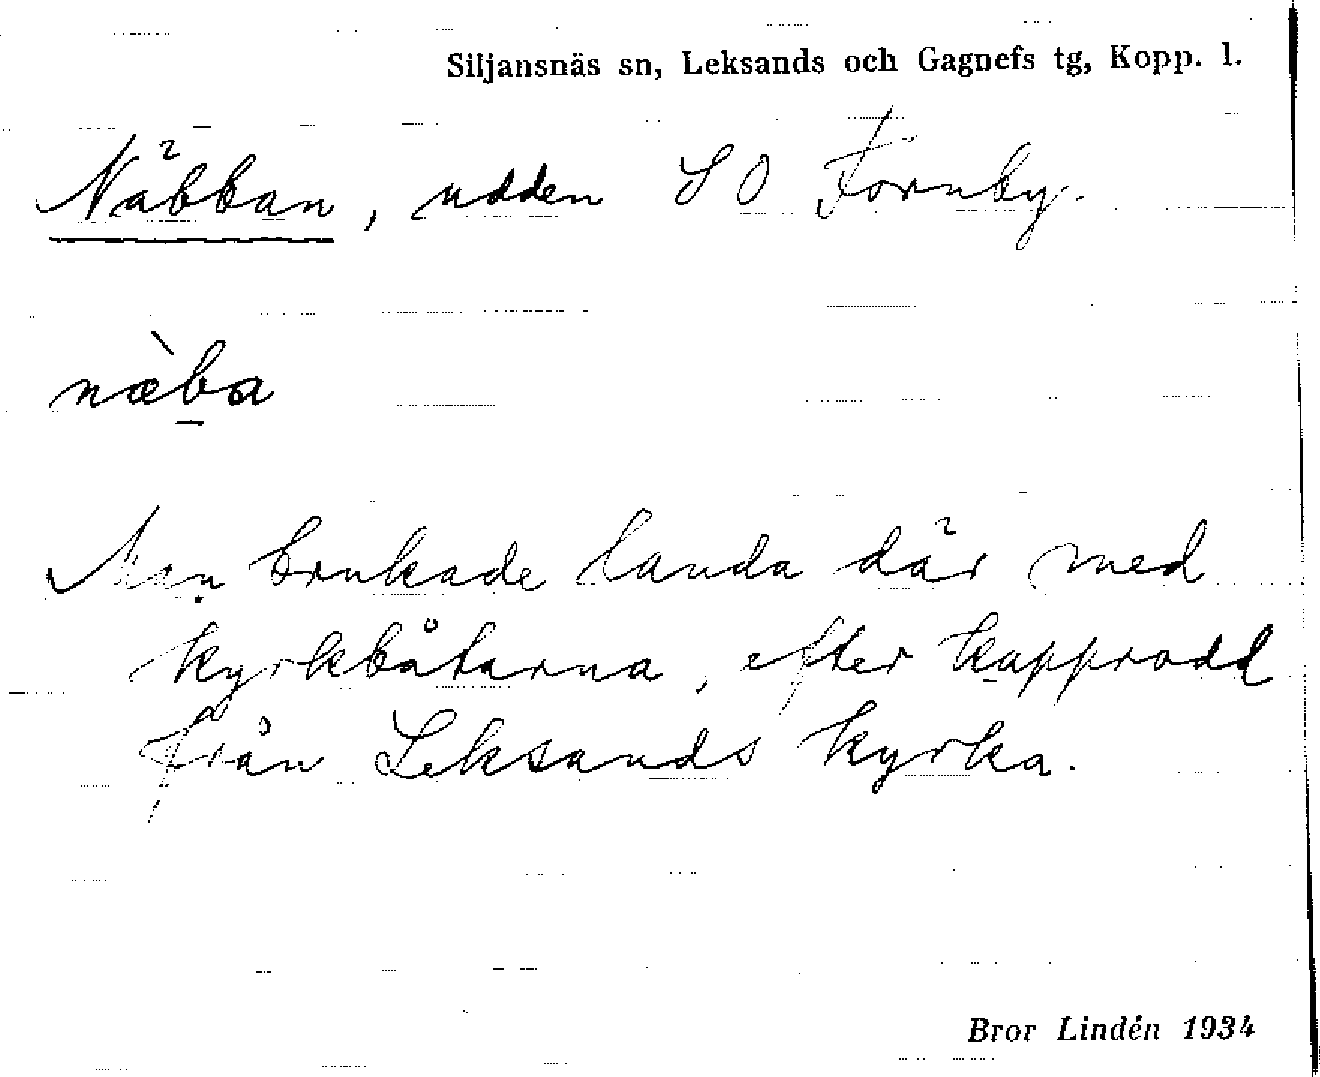 Siljansnäs sn, Leksands och Gagnefs tg, Kopp. l.
Näbban, udden SO Fornby.
næ̀ba
Man brukade landa där med
kyrkbåtarna, efter kapprodd
från Leksands kyrka.
Bror Lindén 1934